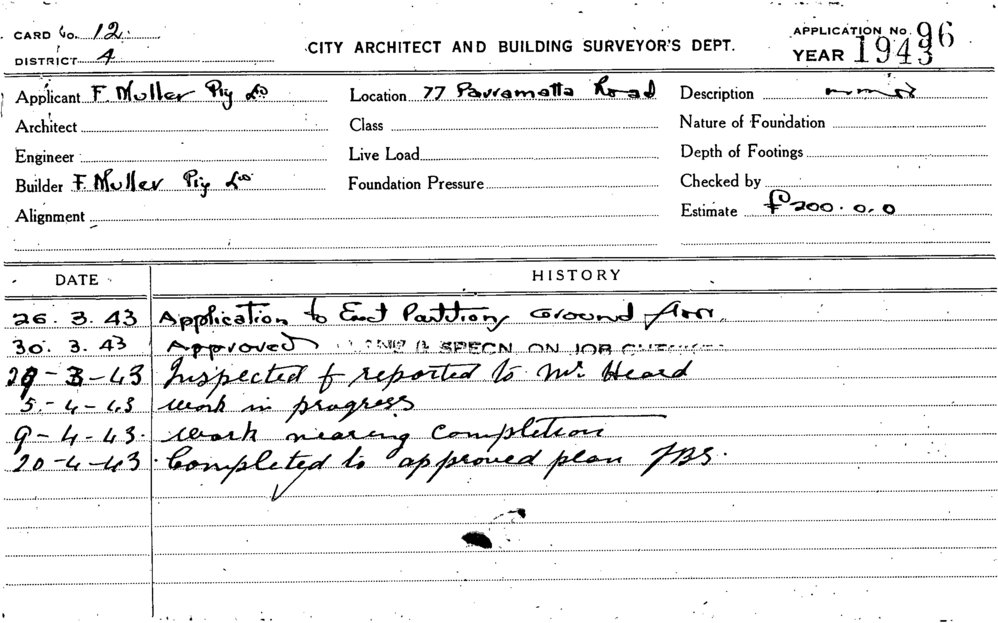 CARD No. 12.
DISTRICT 4
CITY ARCHITECT AND BUILDING SURVEYOR'S DEPT.
APPLICATION No. 96
YEAR 1943
Applicant F. Muller Pty Ld
Location 77 Parramatta Road
Description
Architect
Class
Nature of Foundation
Engineer
Live Load
Depth of Footings
Builder F. Muller Pty Ld
Foundation Pressure
Checked by
Alignment
Estimate £200.0.0
DATE
HISTORY
26. 3. 43 Application to Erect Partitions Ground floor.
30. 3. 43 Approved & SPECN. ON JOB
29-3-43 Inspected & reported to Mr Heard
5-4-43 work in progress
9-4-43. work nearing completion
20-4-43. Completed to approved plan JBS.